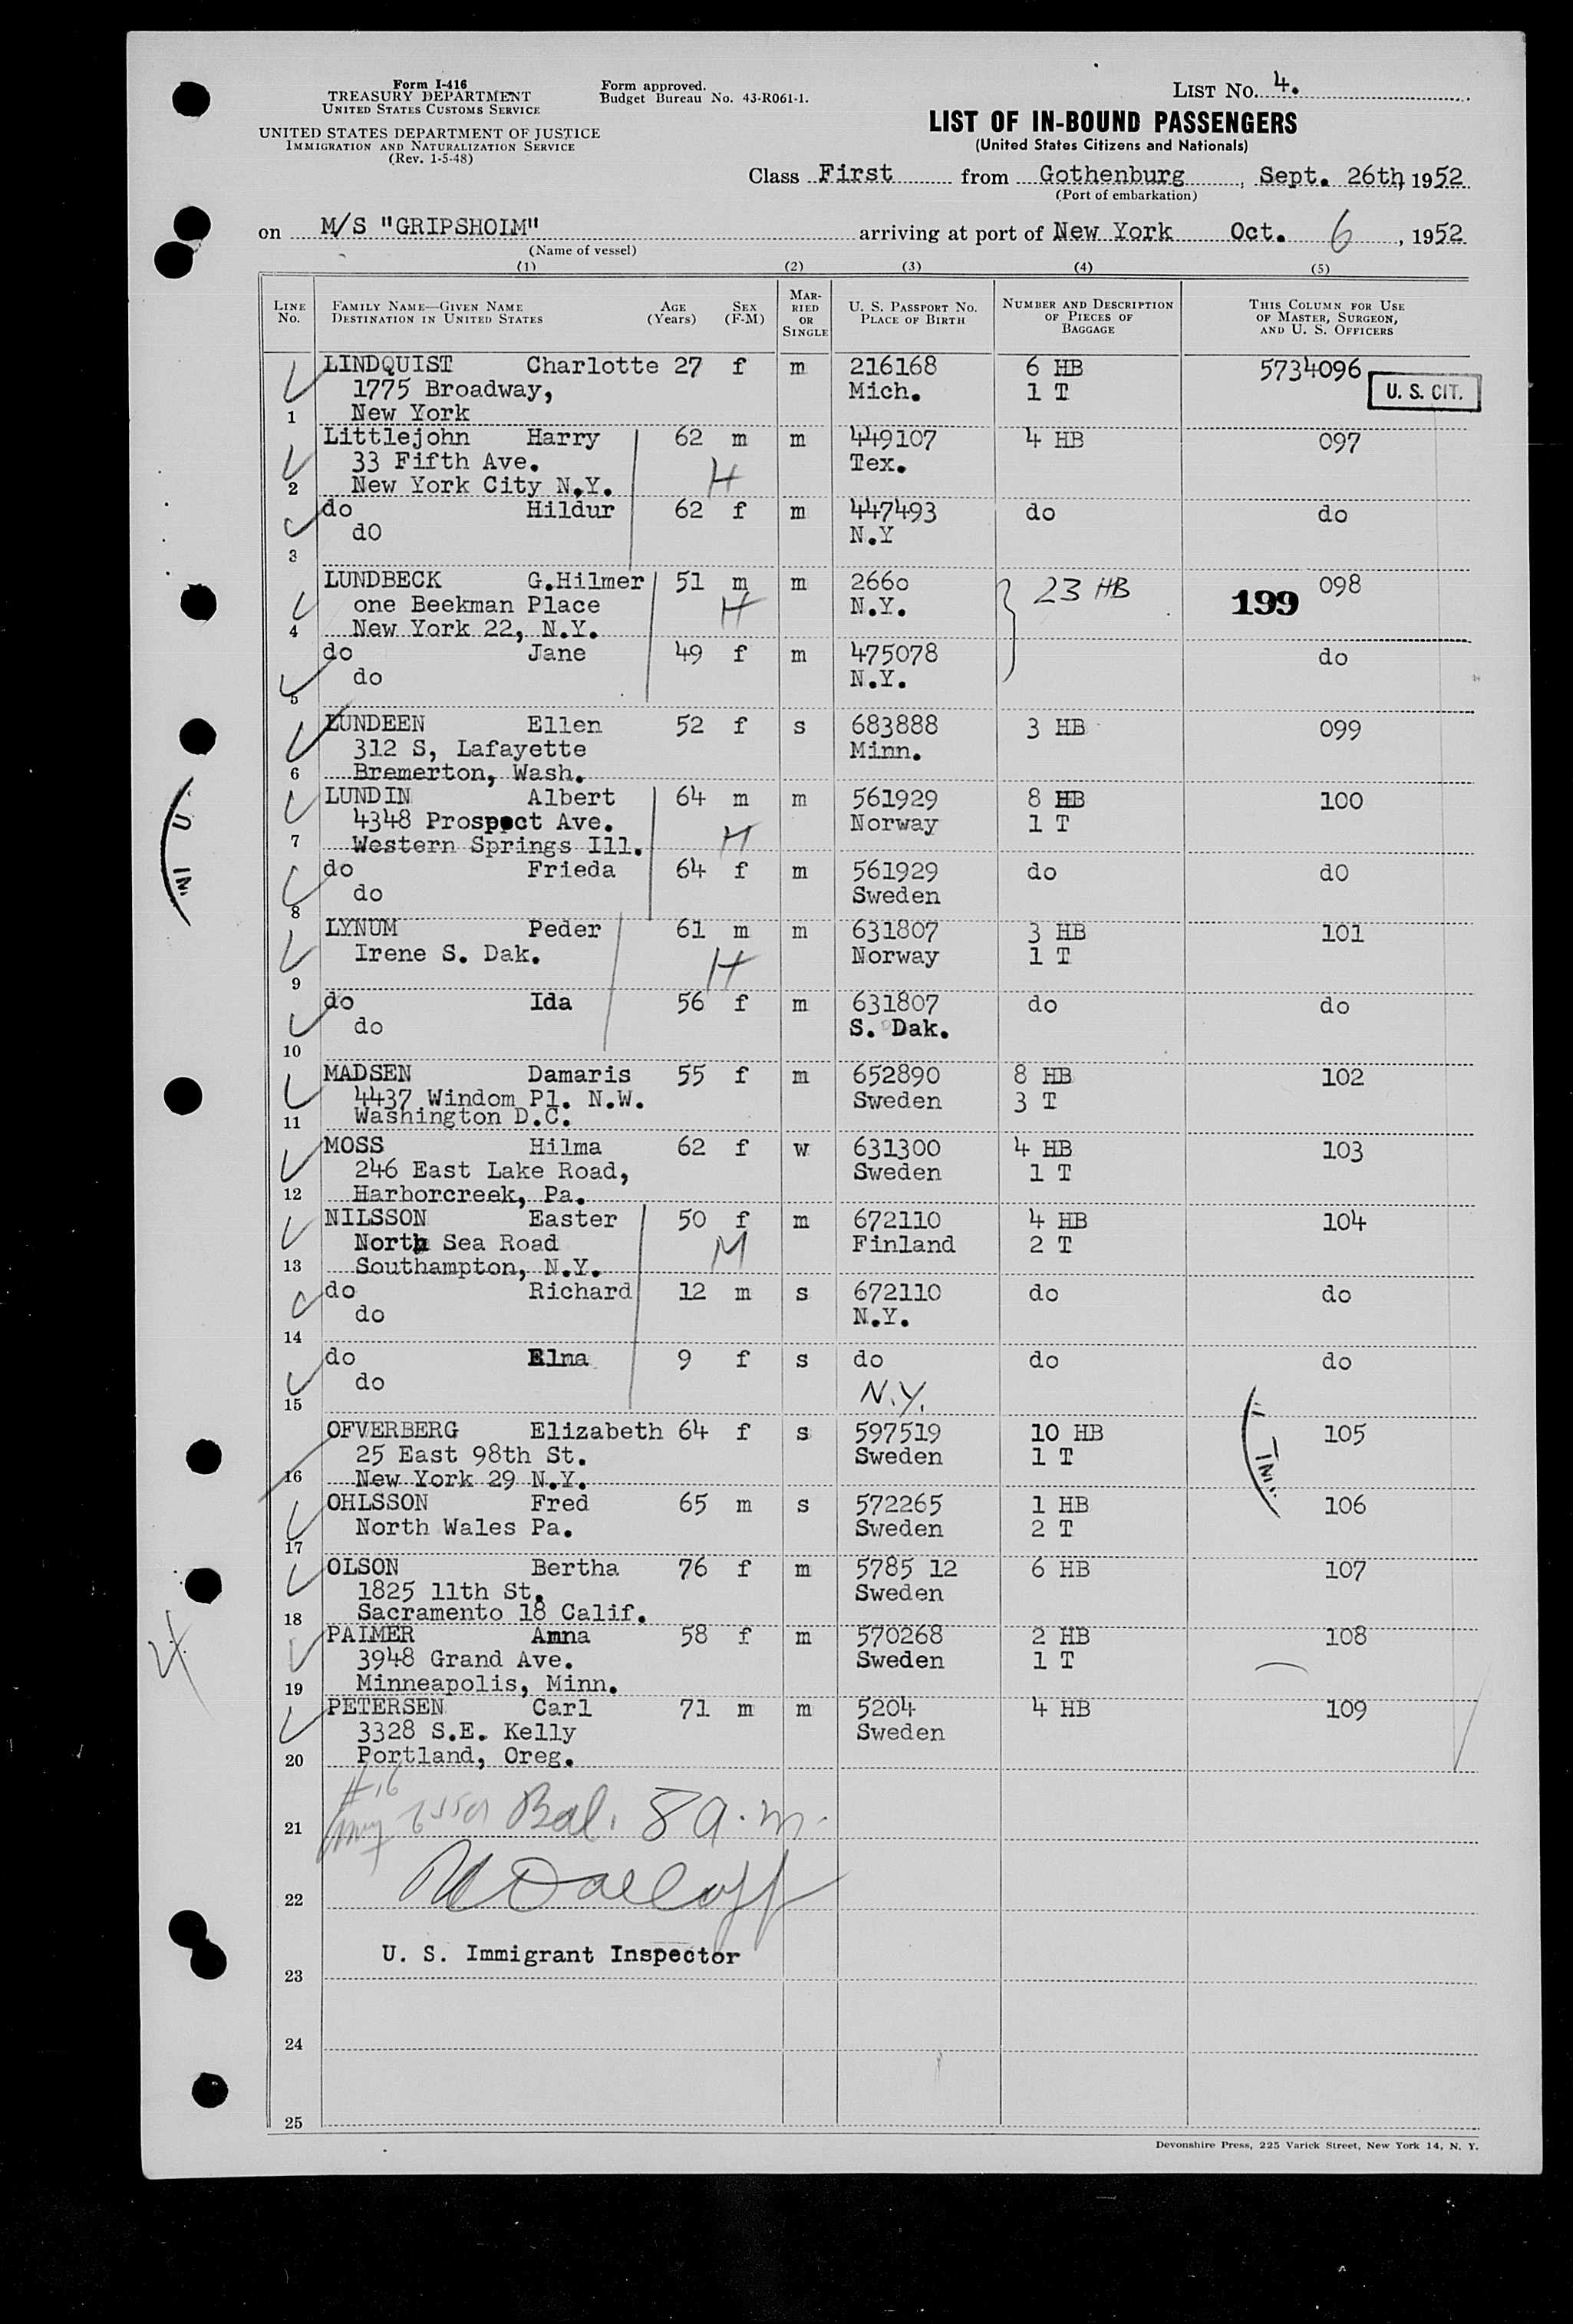 Form I-416
TREASURY DEPARTMENT
UNITED STATES CUSTOMS SERVICE
UNITED STATES DEPARTMENT OF JUSTICE
IMMIGRATION AND NATURALIZATION SERVICE
(Rev. 1-5-48)
Form approved.
Budget Bureau No. 43-R061-1.
LIST NO. 4.
LIST OF IN-BOUND PASSENGERS
(United States Citizens and Nationals)
Class First from Gothenburg, Sept. 26th, 1952
(Port of embarkation)
on M/S "GRIPSHOLM" arriving at port of New York Oct. 6, 1952
(Name of vessel)
(1) (2) (3) (4) (5)
LINE NO. FAMILY NAME—GIVEN NAME DESTINATION IN UNITED STATES AGE (Years) SEX (F-M) MARRIED OR SINGLE U. S. PASSPORT NO. PLACE OF BIRTH NUMBER AND DESCRIPTION OF PIECES OF BAGGAGE THIS COLUMN FOR USE OF MASTER, SURGEON, AND U. S. OFFICERS
LINDQUIST Charlotte 27 f m 216168 6 HB 5734096
1775 Broadway, Mich. 1 T U. S. CIT.
1 New York
Littlejohn Harry 62 m m 449107 4 HB 097
33 Fifth Ave. H Tex.
2 New York City N.Y.
do Hildur 62 f m 447493 do do
dO N.Y
3
LUNDBECK G.Hilmer 51 m m 2660 23 HB 098
one Beekman Place H N.Y. 199
4 New York 22, N.Y.
do Jane 49 f m 475078 do
do N.Y.
5
LUNDEEN Ellen 52 f s 683888 3 HB 099
312 S, Lafayette Minn.
6 Bremerton, Wash.
LUNDIN Albert 64 m m 561929 8 HB 100
4348 Prospect Ave. H Norway 1 T
7 Western Springs Ill.
do Frieda 64 f m 561929 do dO
do Sweden
8
LYNUM Peder 61 m m 631807 3 HB 101
Irene S. Dak. H Norway 1 T
9
do Ida 56 f m 631807 do do
do S. Dak.
10
MADSEN Damaris 55 f m 652890 8 HB 102
4437 Windom Pl. N.W. Sweden 3 T
11 Washington D.C.
MOSS Hilma 62 f w 631300 4 HB 103
246 East Lake Road, Sweden 1 T
12 Harborcreek, Pa.
NILSSON Easter 50 f m 672110 4 HB 104
North Sea Road M Finland 2 T
13 Southampton, N.Y.
do Richard 12 m s 672110 do do
do N.Y.
14
do Elna 9 f s do do do
do N.Y.
15
OFVERBERG Elizabeth 64 f s 597519 10 HB 105
25 East 98th St. Sweden 1 T
16 New York 29 N.Y.
OHLSSON Fred 65 m s 572265 1 HB 106
North Wales Pa. Sweden 2 T
17
OLSON Bertha 76 f m 5785 12 6 HB 107
1825 11th St. Sweden
18 Sacramento 18 Calif.
PALMER Anna 58 f m 570268 2 HB 108
3948 Grand Ave. Sweden 1 T
19 Minneapolis, Minn.
PETERSEN Carl 71 m m 5204 4 HB 109
3328 S.E. Kelly Sweden
20 Portland, Oreg.
#16
21 Bal. 8 a.m.
22
U. S. Immigrant Inspector
23
24
25
4
Devonshire Press, 225 Varick Street, New York 14, N. Y.